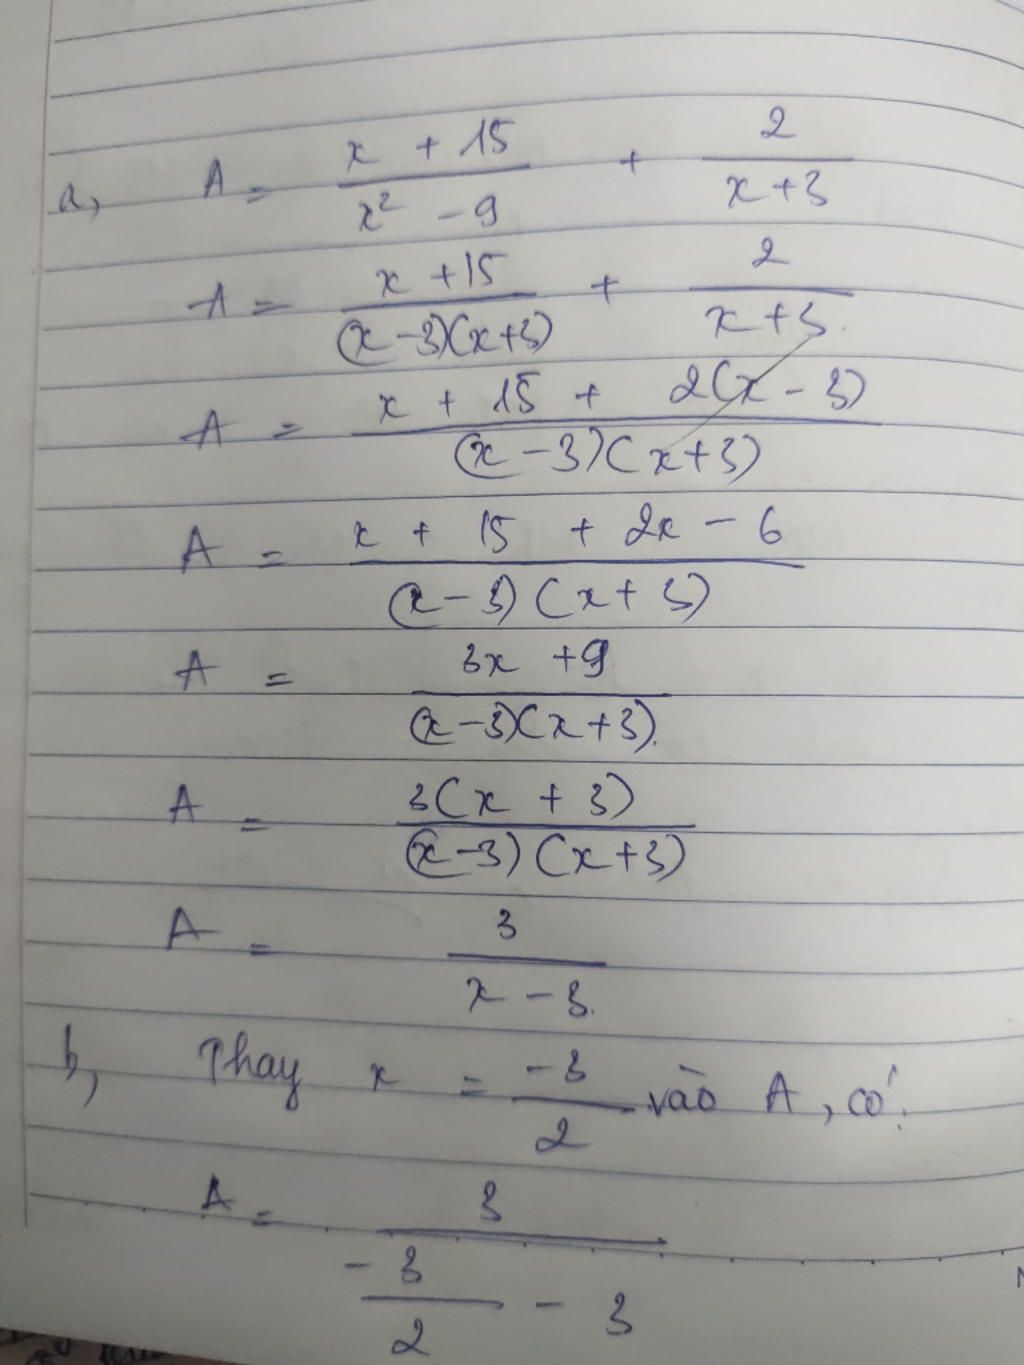 a, A = x + 15 / x² - 9 + 2 / x + 3
A = x + 15 / (x - 3)(x + 3) + 2 / x + 3
A = x + 15 + 2(x - 3) / (x - 3)(x + 3)
A = x + 15 + 2x - 6 / (x - 3)(x + 3)
A = 3x + 9 / (x - 3)(x + 3)
A = 3(x + 3) / (x - 3)(x + 3)
A = 3 / x - 3
b, Thay x = -3 / 2 vào A, có:
A = 3 / -3 / 2 - 3